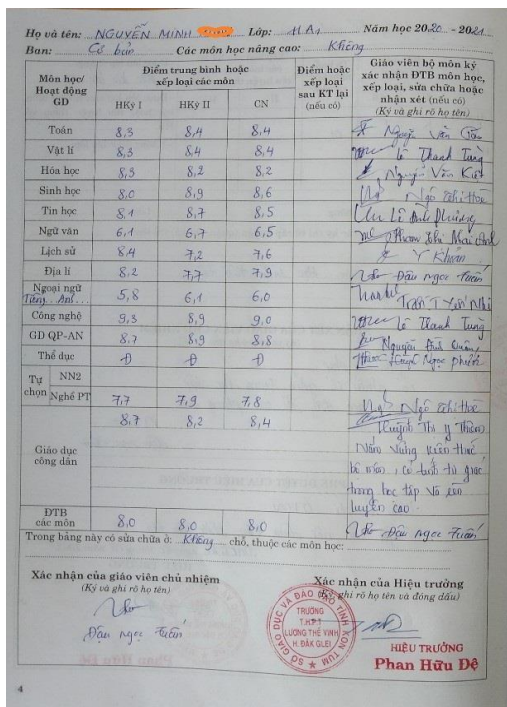 Họ và tên: NGUYỄN MINH Lớp: 11A1 Năm học 2020 - 2021
Ban: Cơ bản Các môn học nâng cao: Không
Môn học/ Hoạt động GD
Điểm trung bình hoặc xếp loại các môn
HKỳ I HKỳ II CN
Điểm hoặc xếp loại sau KT lại (nếu có)
Giáo viên bộ môn ký xác nhận ĐTB môn học, xếp loại, sửa chữa hoặc nhận xét (nếu có)
(Ký và ghi rõ họ tên)
Toán 8,3 8,4 8,4 Nguyễn Văn
Vật lí 8,3 8,4 8,4 Lê Thanh Tùng
Hóa học 8,3 8,2 8,2 Nguyễn Văn
Sinh học 8,0 8,9 8,6 Ngô Thị Hoè
Tin học 8,1 8,7 8,5 Lê Anh Phương
Ngữ văn 6,1 6,7 6,5 Phạm Thị Mai Anh
Lịch sử 8,4 7,2 7,6 Y Khoăn
Địa lí 8,2 7,7 7,9 Đậu Ngọc Tuấn
Ngoại ngữ
Tiếng Anh 5,8 6,1 6,0 Trần T Yến Nhi
Công nghệ 9,3 8,9 9,0 Lê Thanh Tùng
GD QP-AN 8,7 8,9 8,8 Nguyễn Đình
Thể dục Đ Đ Đ Huỳnh Ngọc
Tự chọn NN2
Nghề PT 7,7 7,9 7,8 Ngô Thị Hoè
Giáo dục công dân 8,7 8,2 8,4 Huỳnh Thị Y Thiên
Nắm vững kiến thức
bộ môn, có tính tự giác
trong học tập và rèn
luyện cao.
ĐTB các môn 8,0 8,0 8,0 Đậu Ngọc Tuấn
Trong bảng này có sửa chữa ở: Không chỗ, thuộc các môn học:
Xác nhận của giáo viên chủ nhiệm
(Ký và ghi rõ họ tên)
Đậu Ngọc Tuấn
Xác nhận của Hiệu trưởng
(Ký, ghi rõ họ tên và đóng dấu)
SỞ GIÁO DỤC VÀ ĐÀO TẠO TỈNH KON TUM
TRƯỜNG
T.H.P.T
LƯƠNG THẾ VINH
H. ĐĂK GLEI
HIỆU TRƯỞNG
Phan Hữu Đệ
4